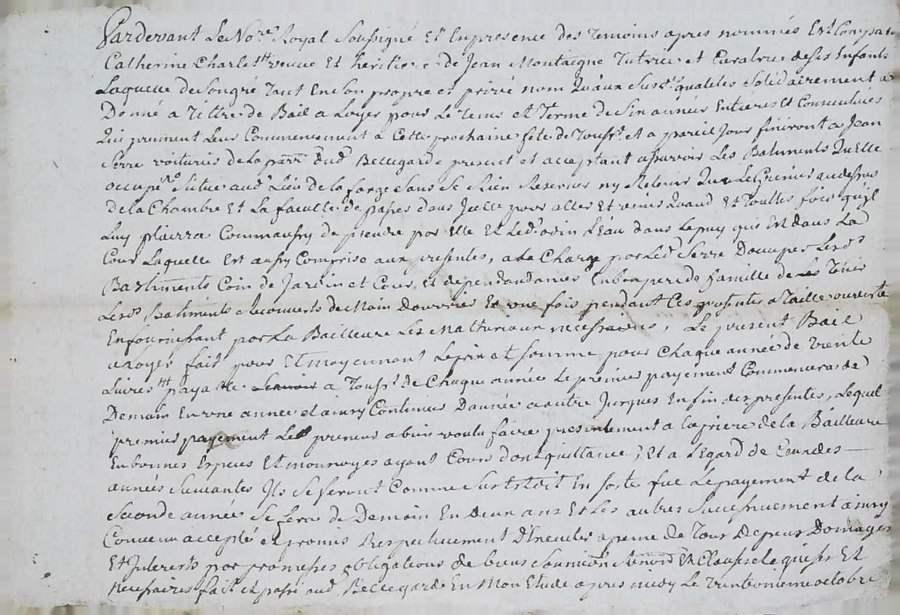 Pardevant Le No.re Royal Soussigné Et En presence des Temoins apres nommés Est Compar
Catherine Charles veuve Et heritiere de Jean Montaigne Tutrice et Curatrice de ses Enfants
Laquelle de Son gré Tant En Son propre et privé nom Qu'aux Susd. qualités Solidairement a
Donné a Tittre de Bail a Loyer pour Le Tems et Terme de Six années Entieres Et Consecutives
Qui prennent Leur Commencement a Cette prochaine fete de Touss.t et a pareil Jour finiront a Jean
Serre voiturier de la parr. dud. Bellegarde present et acceptant assavoir Les Batiments Qu'elle
occupe Situé aud. Lieu de la forge Sans Se Rien Reserver ny Retenir Que Le Grenier audessus
de la Chambre Et La faculté de passer dans Icelle pour aller Et venir Quand Et Touttes fois qu'il
Luy plairra Comm'aussy de prendre par Elle Et Led. de L'eau dans Le puy qui Est dans La
Cour Laquelle Est aussy Comprise aux presentes, a La Charge par Led. Serre D'occuper Lesd.
Battiments Coin de Jardin et Cour et dependances En bon pere de famille de
Lesd. Batiments a Recouverts de Main d'ouvrier Et une fois pendant Ces presentes a Taille ouverte
En fournissant par La Bailleure Les Matteriaux necessaires, Le present Bail
a Loyer fait pour Et moyennant Le prix et somme pour Chaque année de vente
Livres payable a Touss.t de Chaque année Le premier payement Commencera de
Demain En une année et ainsy Continuer D'année a autre Jusques En fin des presentes, Lequel
premier payement Le preneur a bien voulu faire presentement a la priere de la Bailleure
En bonnes Especes Et monnoyes ayant Cours dont quittance, Et a L'egard de
années Suivantes Ils Se feront Comme Surtdit En Sorte que Le payement de la
Seconde année Se fera de Demain En deux ans Et Les autres Successivement ainsy
Convenu accepté et promis Respectivement D'executer a peine de Tous Depens Domages
Et Interets par promesses obligations de biens Soumission Renon.on Clauses Requises Et
necessaires fait et passé aud. Bellegarde En Mon Etude apres midy Le octobre